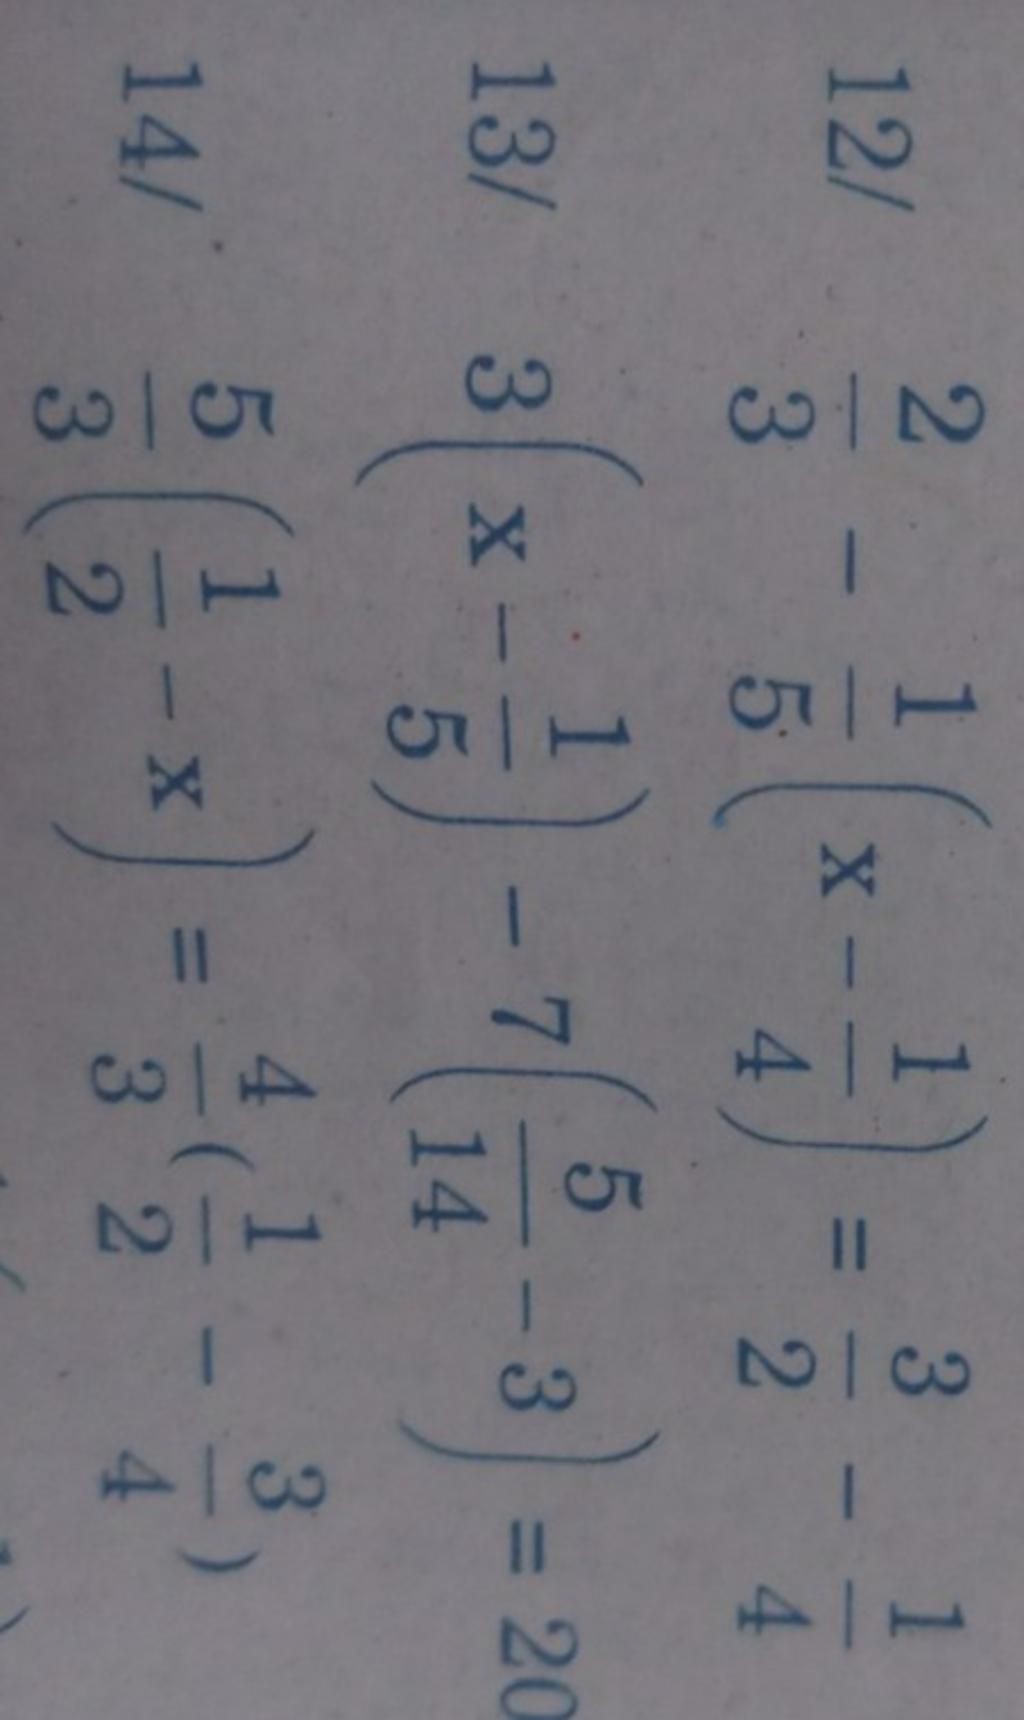 12/ 2/3 - 1/5 (x - 1/4) = 3/2 - 1/4
13/ 3(x - 1/5) - 7(5/14 - 3) = 20
14/ 5/3 (1/2 - x) = 4/3 (1/2 - 3/4)